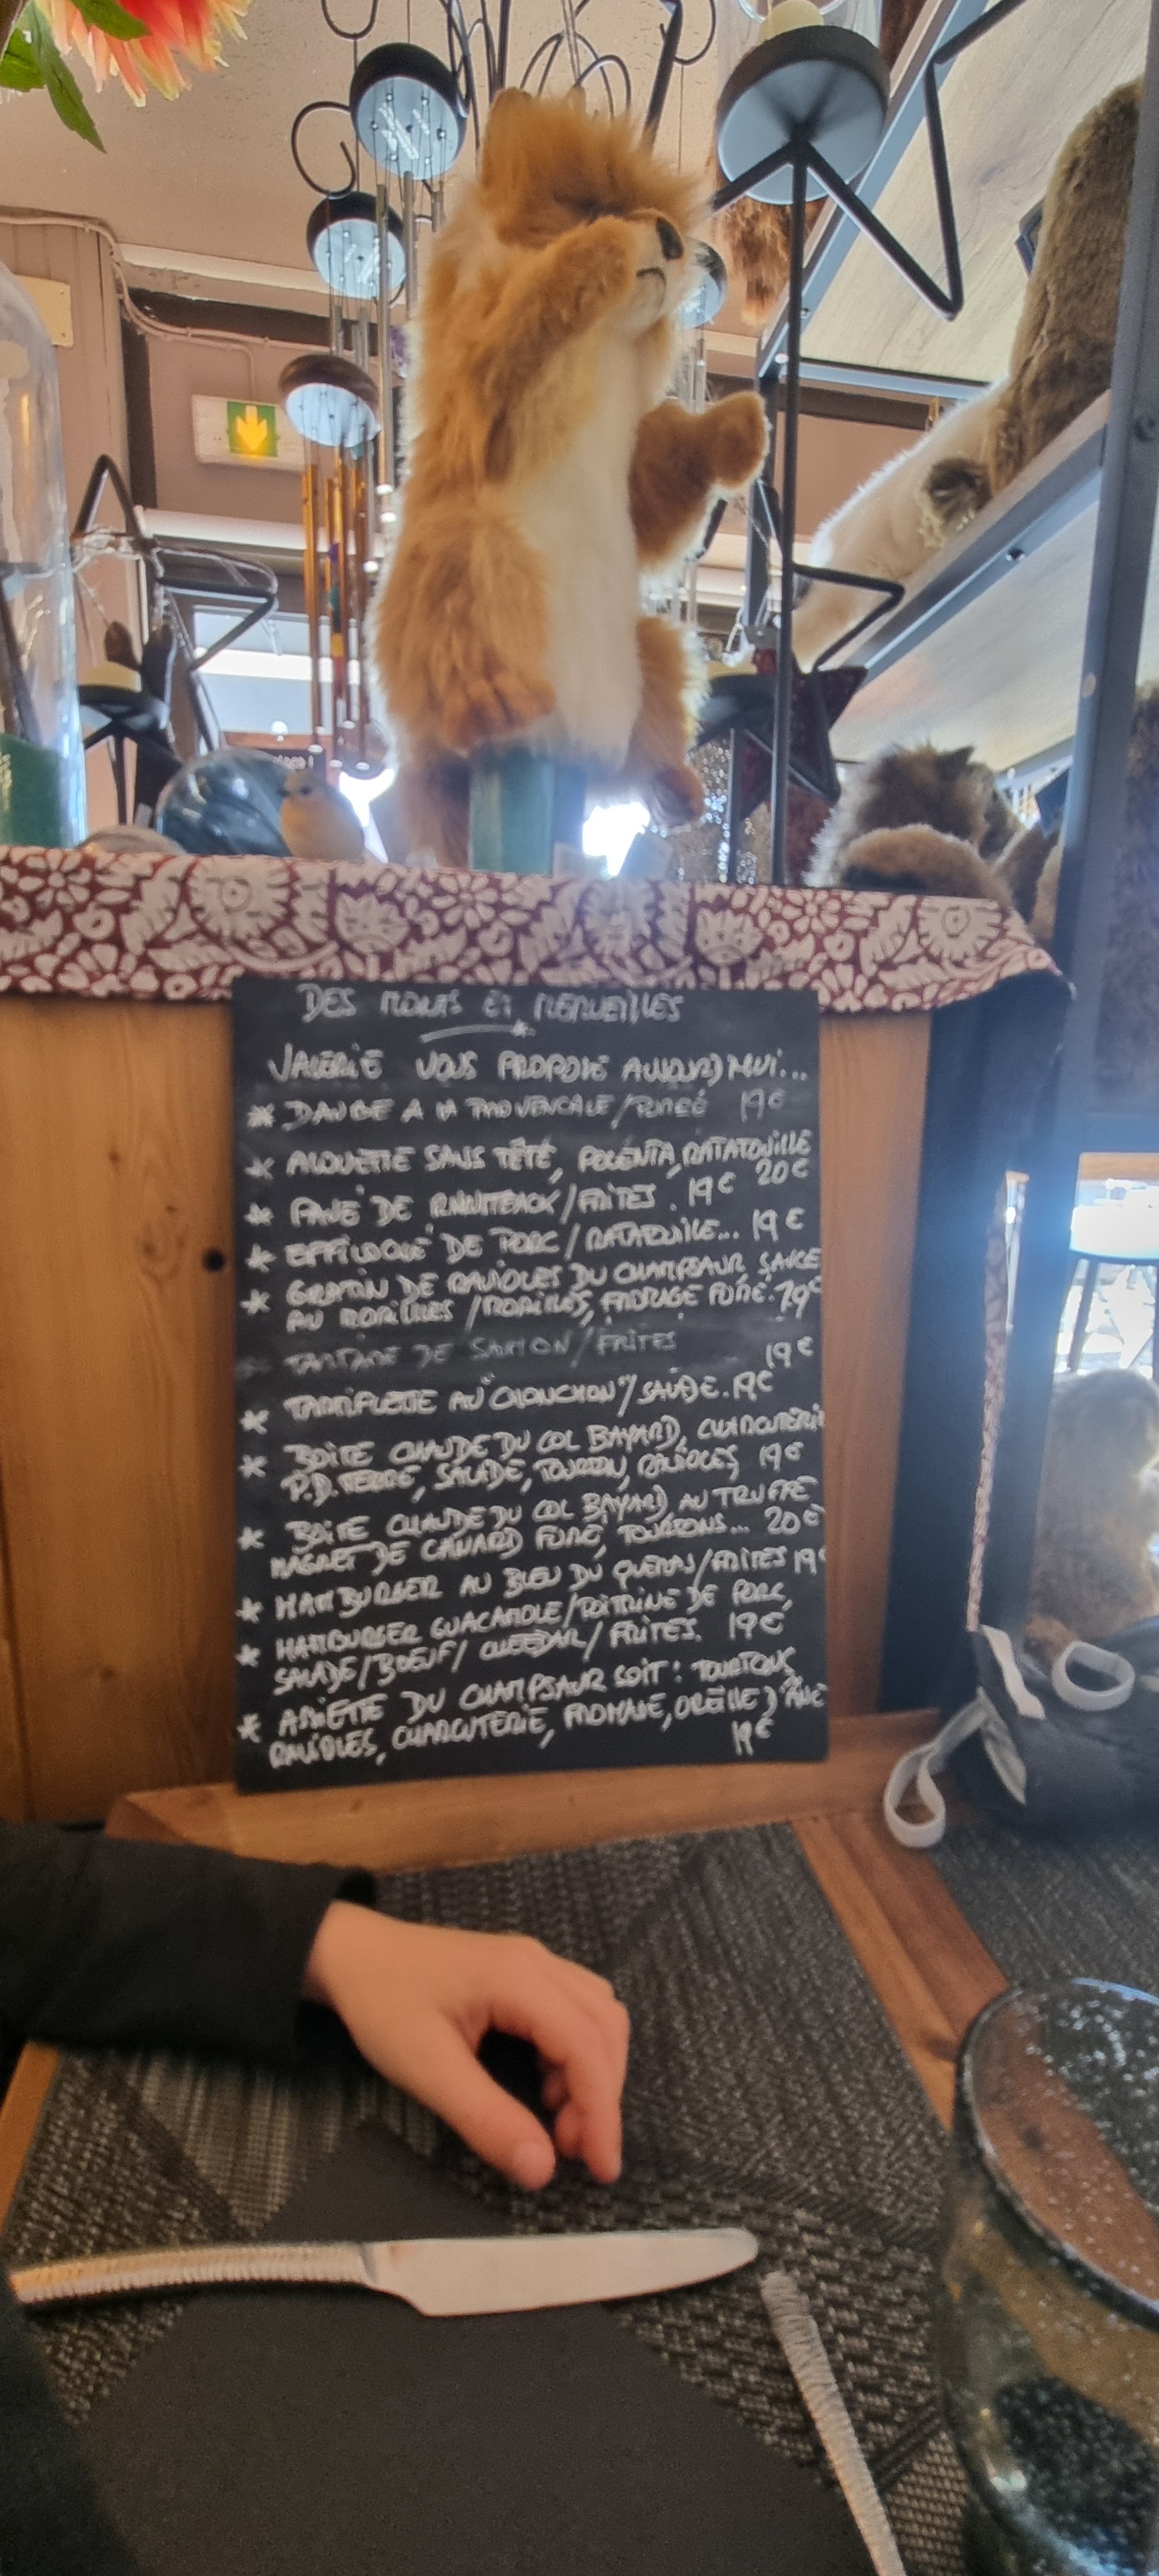 DES METS ET MERVEILLES
VALERIE VOUS PROPOSE AUJOURD'HUI...
* DAUBE A LA PROVENCALE / PUREE 19€
* ALOUETTE SANS TÊTE, POLENTA, RATATOUILLE 20€
* PAVÉ DE RUMSTEACK / FRITES. 19€
* EFFILOCHÉ DE PORC / RATATOUILLE... 19€
* GRATIN DE RAVIOLES DU CHAMPSAUR SAUCE
AU MORILLES / MORILLES, FROMAGE FUMÉ. 19€
TARTARE DE SAUMON / FRITES 19€
* TARTIFLETTE AU "CHONCHON" / SALADE. 19€
* BOITE CHAUDE DU COL BAYARD, CHARCUTERIE
P.D. TERRE, SALADE, TOURTON, RAVIOLES 19€
* BOITE CHAUDE DU COL BAYARD AU TRUFFE
MAGRET DE CANARD FUMÉ, TOURTONS... 20€
* HAMBURGER AU BLEU DU QUEYRAS / FRITES 19€
* HAMBURGER GUACAMOLE / POITRINE DE PORC,
SALADE / BOEUF / CHEEDAR / FRITES. 19€
* ASSIETTE DU CHAMPSAUR SOIT : TOURTONS,
RAVIOLES, CHARCUTERIE, FROMAGE, OREILLE D'ÂNE
19€